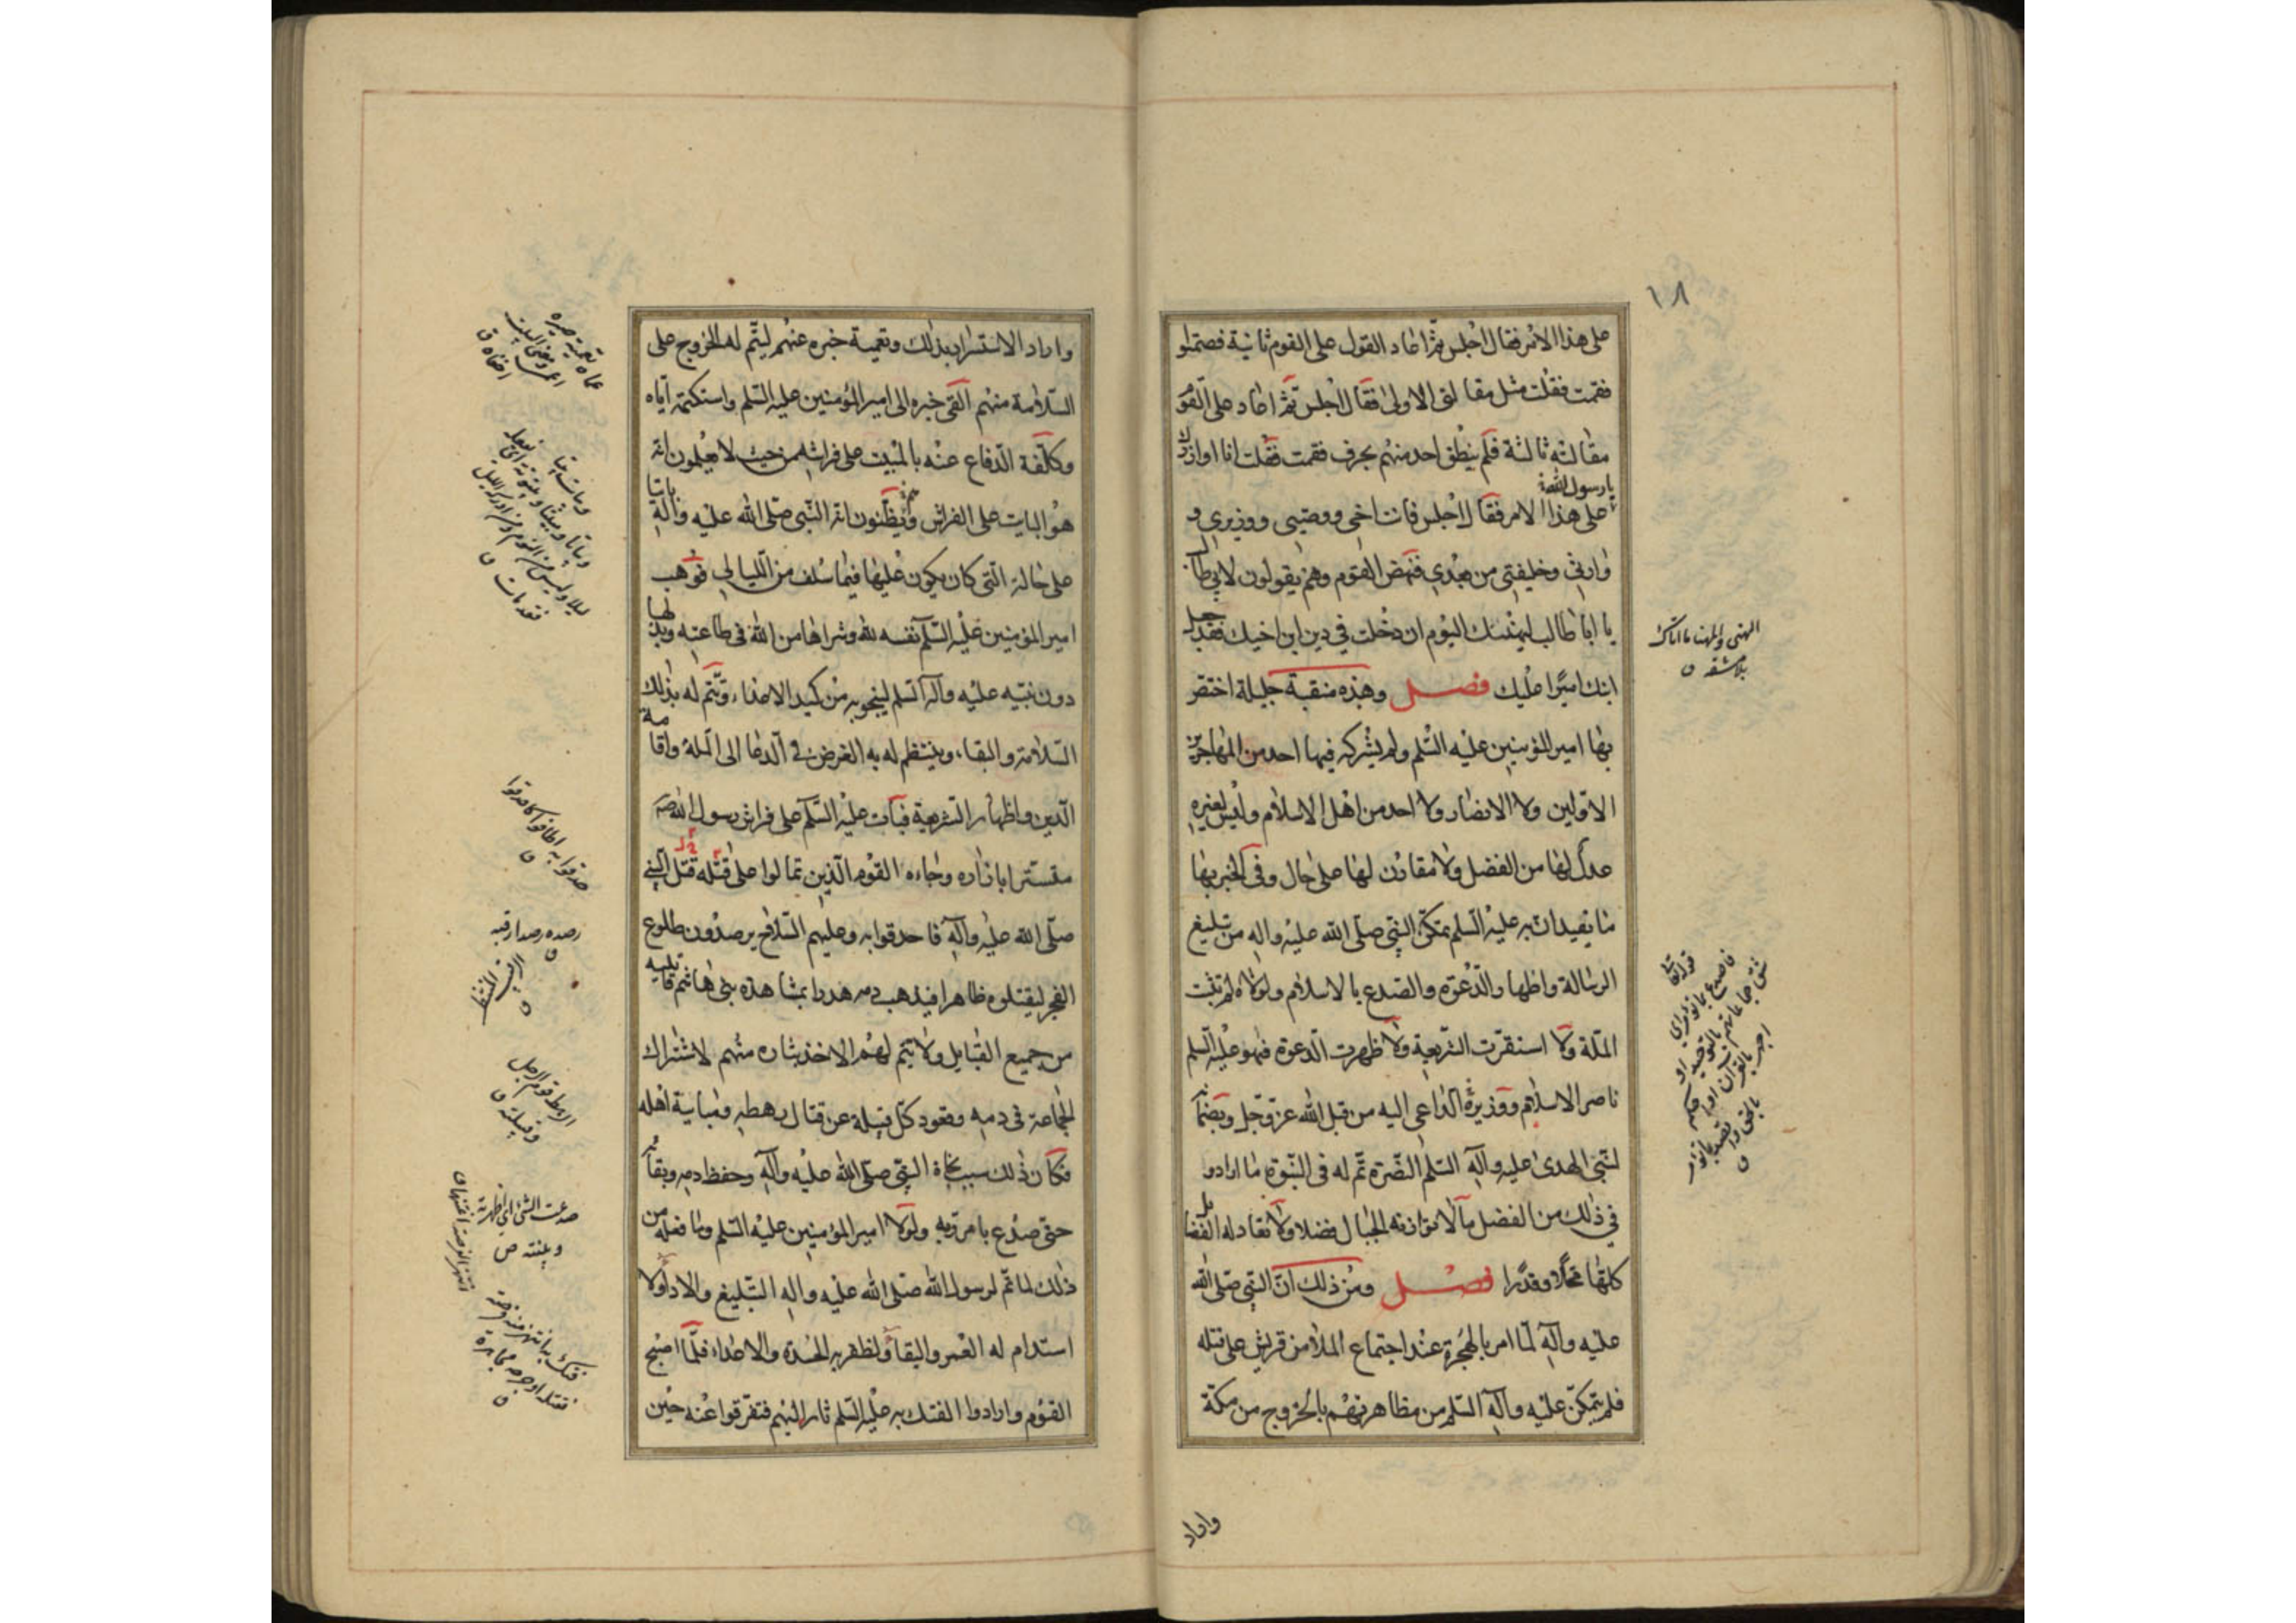 ١٨
على هذا الامر فقال اجلس ثمّ اعاد القول على القوم ثانية فصمتوا
فقمت فقلت مثل مقالتى الاولى فقال اجلس ثمّ اعاد على القوم
مقالته ثالثة فلم ينطق احد منهم بحرف فقمت فقلت انا اوازرك
يا رسول الله
على هذا الامر فقال اجلس فانت اخي ووصيي ووزيري و
وارثي وخليفتي من بعدي فنهض القوم وهم يقولون لابي طالب
يا ابا طالب ليهنئك اليوم ان دخلت في دين ابن اخيك فقد جعل
ابنك اميرًا عليك فصل وهذه منقبة جليلة اختص
بها امير المؤمنين عليه السّلم ولم يشركه فيها احد من المهاجرين
الاوّلين ولا الانصار ولا احد من اهل الاسلام وليس لغيره
عدل لها من الفضل ولا مقارن لها على حال وفي الخبر بها
ما يفيد ان به عليه السّلم تمكن النبي صلى الله عليه واله من تبليغ
الرسالة واظهار الدّعوة والصّدع بالاسلام ولولاه لم تثبت
الملّة ولا استقرت الشريعة ولا ظهرت الدّعوة فهو عليه السلم
ناصر الاسلام ووزيره الدّاعى اليه من قبل الله عزّ وجل وبضمانه
لنبي الهدى عليه وآله السّلم النّصرة تمّ له فى النّبوّة ما اراد و
في ذلك من الفضل ما لا توازنه الجبال فضلا ولا تعادله الفضائل
كلّها محلّا وقدرًا فصل ومن ذلك انّ النبي صلى الله
عليه وآله لمّا امر بالهجرة عند اجتماع الملأ من قريش على قتله
فلم يتمكّن عليه وآله السّلم من مظاهرتهم بالخروج من مكّة
واراد
واراد الاستسرار بذلك وتعمية خبره عنهم ليتمّ له الخروج على
السّلامة منهم القى خبره الى امير المؤمنين عليه السّلم واستكتمه ايّاه
وكلّفه الدّفاع عنه بالمبيت على فراشه من حيث لا يعلمون انّه
هو البايت على الفراش ويظنّون انه النّبى صلّى الله عليه وآله باتيا
على حالة التّى كان يكون عليها فيما سلف من اللّيالى فوهب
امير المؤمنين عليه السّلم نفسه لله وشراها من الله فى طاعته وبذلها
دون نبيّه عليه وآله السّلم لينجو به من كيد الاعداء وتتمّ له بذلك
السّلامة والبقاء وينتظم له به الغرض في الدعا الى الملّة واقامة
الدّين واظهار الشّريعة فبات عليه السّلم على فراش رسول الله ص
متسترا بازاره وجاءه القوم الّذين تمالوا على قتله قبل النبي
صلّى الله عليه وآله فاحدقوا به وعليهم السّلاح يرصدون طلوع
الفجر ليقتلوه ظاهرا فيذهب دمه هدرا بمشاهدة بنى هاشم قاتليه
من جميع القبايل ولا يتم لهم الاخذ بثاره منهم لاشتراك
الجماعة فى دمه وقعود كلّ قبيلة عن قتال رهطه ومباينة اهله
فكان ذلك سبب نجاة النبي صلّى الله عليه وآله وحفظ دمه وبقائه
حتى صدع بامر ربه ولولا امير المؤمنين عليه السّلم وما فعله من
ذلك لما تمّ لرسول الله صلّى الله عليه واله التّبليغ والاداء ولا
استدام له العمر والبقاء ولظفر به الحسدة والاعداء فلمّا اصبح
القوم وارادوا الفتك به عليه السّلم ثار اليهم فتفرّقوا عنه حين
رصده رصدا رقبه
الرهط قوم الرجل
وقبيلته ق
صدعت الشئ اى اظهرته
وبيّنته ص